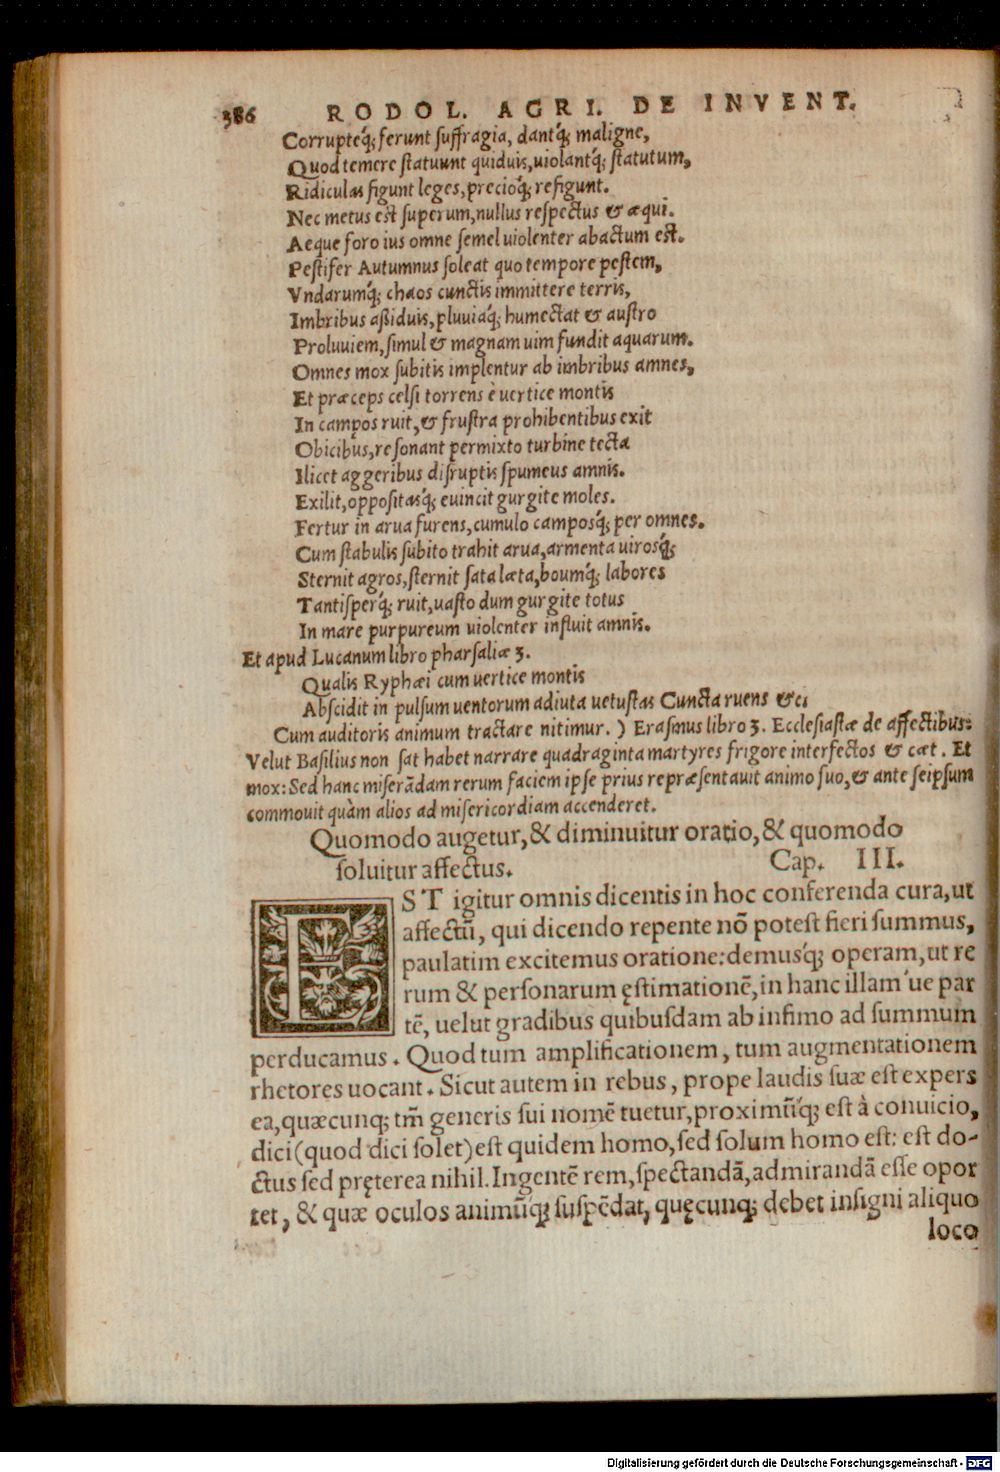 386 RODOL. AGRI. DE INVENT.
Corrupteq́; ferunt suffragia, dantq́; maligne,
Quod temere statuunt quiduis, uiolantq́; statutum,
Ridiculas figunt leges, precioq́; refigunt.
Nec metus est superum, nullus respectus & æqui.
Aeque foro ius omne semel uiolenter abactum est.
Pestifer Autumnus soleat quo tempore pestem,
Vndarumq́; chaos cunctis immittere terris,
Imbribus aßiduis, pluuiaq́; humectat & austro
Proluuiem, simul & magnam uim fundit aquarum.
Omnes mox subitis implentur ab imbribus amnes,
Et præceps celsi torrens è uertice montis
In campos ruit, & frustra prohibentibus exit
Obicibus, resonant permixto turbine tecta
Ilicet aggeribus disruptis spumeus amnis.
Exilit, oppositasq́; euincit gurgite moles.
Fertur in arua furens, cumulo camposq́; per omnes.
Cum stabulis subito trahit arua, armenta uirosq́;
Sternit agros, sternit sata læta, boumq́; labores
Tantisperq́; ruit, uasto dum gurgite totus
In mare purpureum uiolenter influit amnis.
Et apud Lucanum libro pharsaliæ 3.
Qualis Ryphæi cum uertice montis
Abscidit in pulsum uentorum adiuta uetustas Cuncta ruens &c.
Cum auditoris animum tractare nitimur. ) Erasmus libro 3. Ecclesiastæ de affectibus:
Velut Basilius non sat habet narrare quadraginta martyres frigore interfectos & cæt. Et
mox: Sed hanc miserādam rerum faciem ipse prius repræsentauit animo suo, & ante seipsum
commouit quàm alios ad misericordiam accenderet.
Quomodo augetur, & diminuitur oratio, & quomodo
soluitur affectus. Cap. III.
EST igitur omnis dicentis in hoc conferenda cura, ut
affectū, qui dicendo repente nō potest fieri summus,
paulatim excitemus oratione: demusq́; operam, ut re
rum & personarum ęstimationē, in hanc illam ue par
tē, uelut gradibus quibusdam ab infimo ad summum
perducamus. Quod tum amplificationem, tum augmentationem
rhetores uocant. Sicut autem in rebus, prope laudis suæ est expers
ea, quæcunq; tm̃ generis sui nomē tuetur, proximūq́; est à conuicio,
dici (quod dici solet) est quidem homo, sed solum homo est: est do-
ctus sed pręterea nihil. Ingentē rem, spectandā, admirandā esse opor
tet, & quæ oculos animūq́; suspēdat, quęcunq; debet insigni aliquo
loco
Digitalisierung gefördert durch die Deutsche Forschungsgemeinschaft - DFG